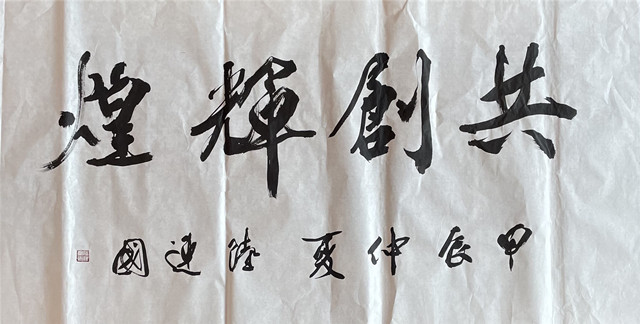 共創輝煌
甲辰仲夏 陸連國